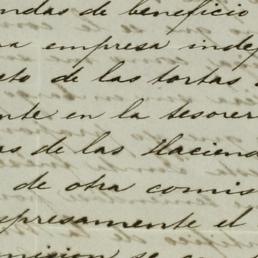 ndas de beneficio
na empresa inde
to de las tortas
nte en la tesorer
as de las Haciend
de otra comis
epresamente el
mision se